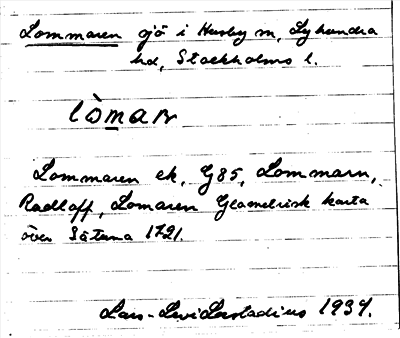 Lommaren sjö i Husby sn, Lyhundra
hd, Stockholms l.
lòmarn
Lommaren ek, G85, Lommarn,
Radloff, Lomaren Geometrisk karta
över Sätuna 1721.
Lars-Levi Læstadius 1937.